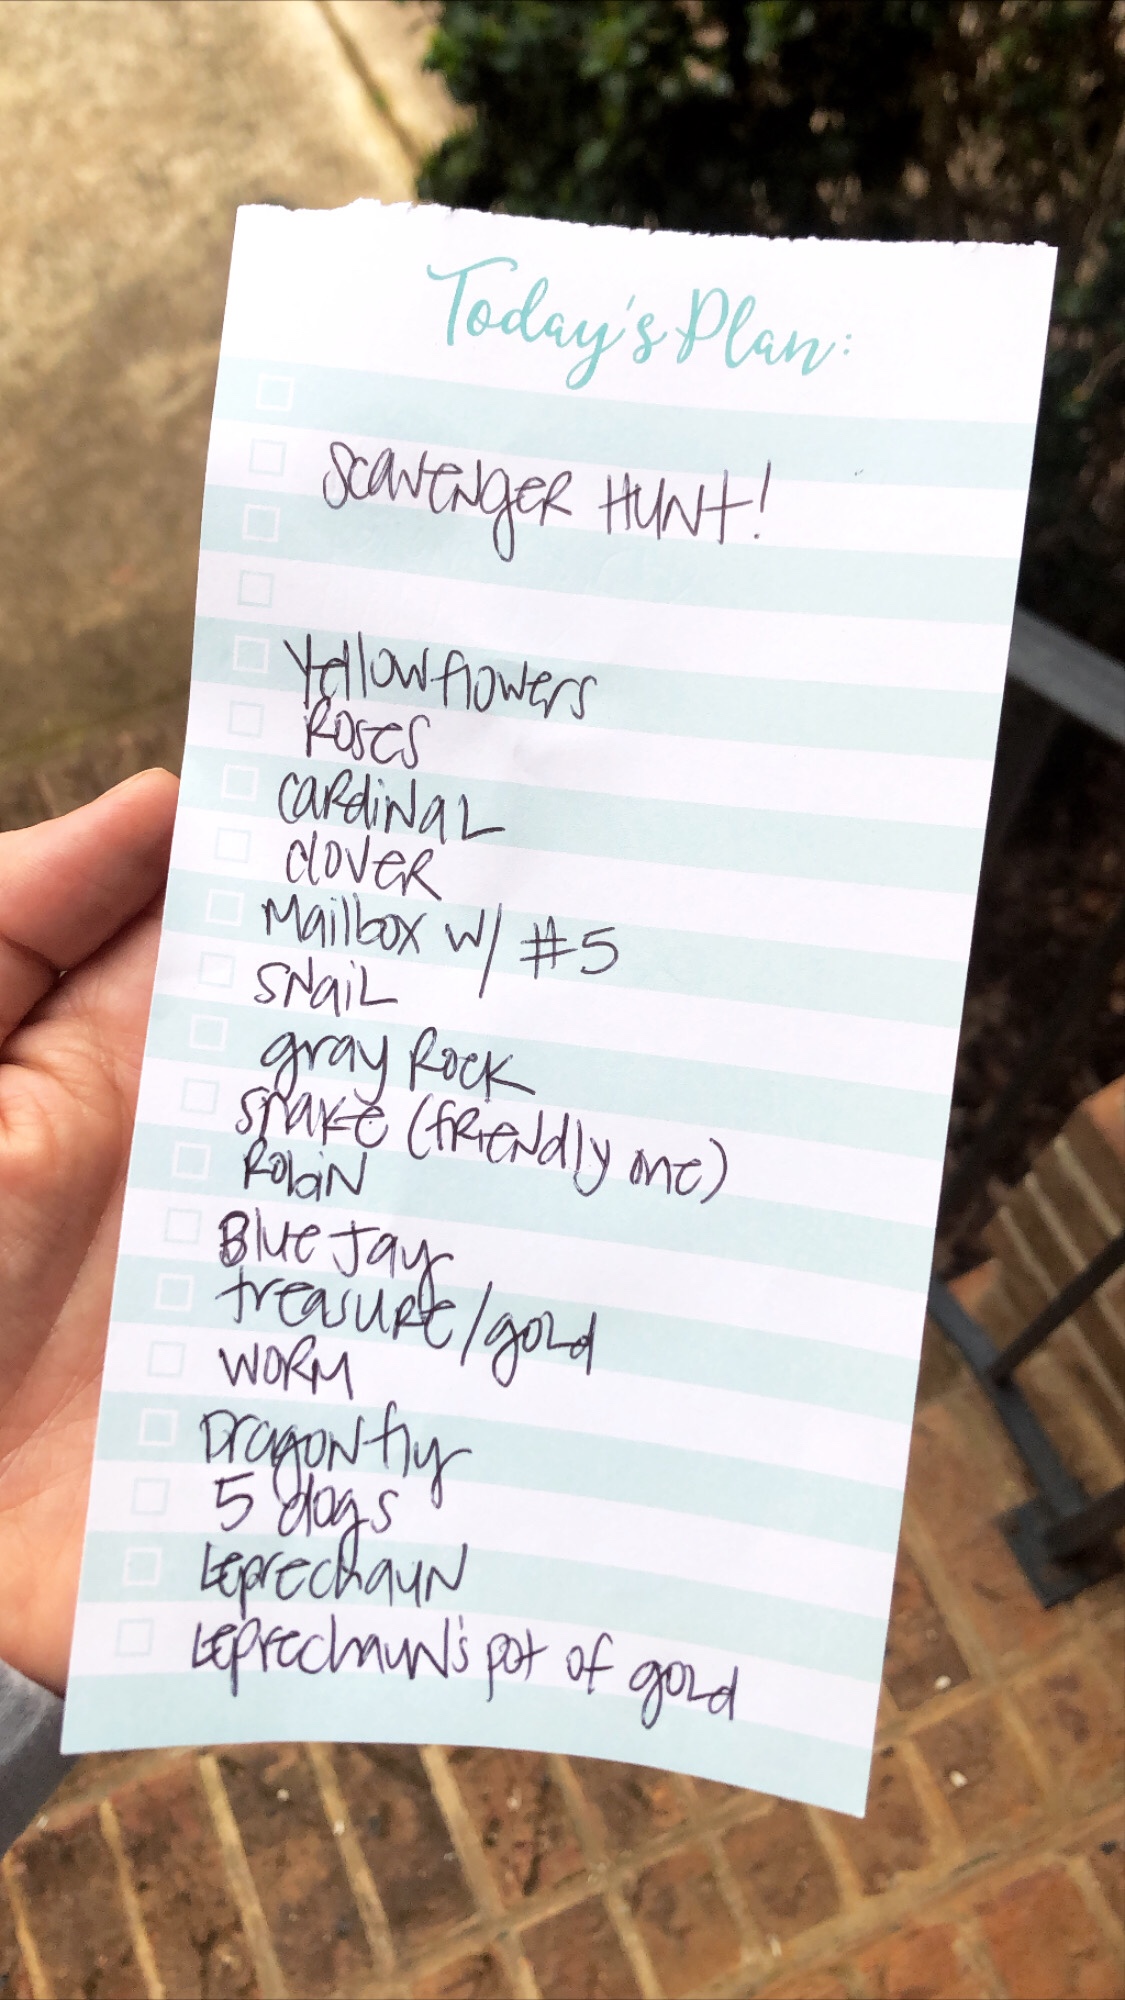 Today's Plan:
Scavenger Hunt!
Yellow flowers
Roses
Cardinal
Clover
Mailbox w/ #5
Snail
gray Rock
snake (friendly one)
Robin
Blue Jay
treasure/gold
Worm
Dragonfly
5 dogs
Leprechaun
Leprechaun's pot of gold